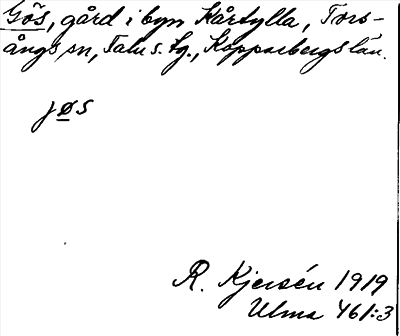 Gös, gård i byn Kårtylla, Tors-
ångs sn, Falu s. tg., Kopparbergs län.
jøs
R. Kjersén 1919
Ulma 461:3